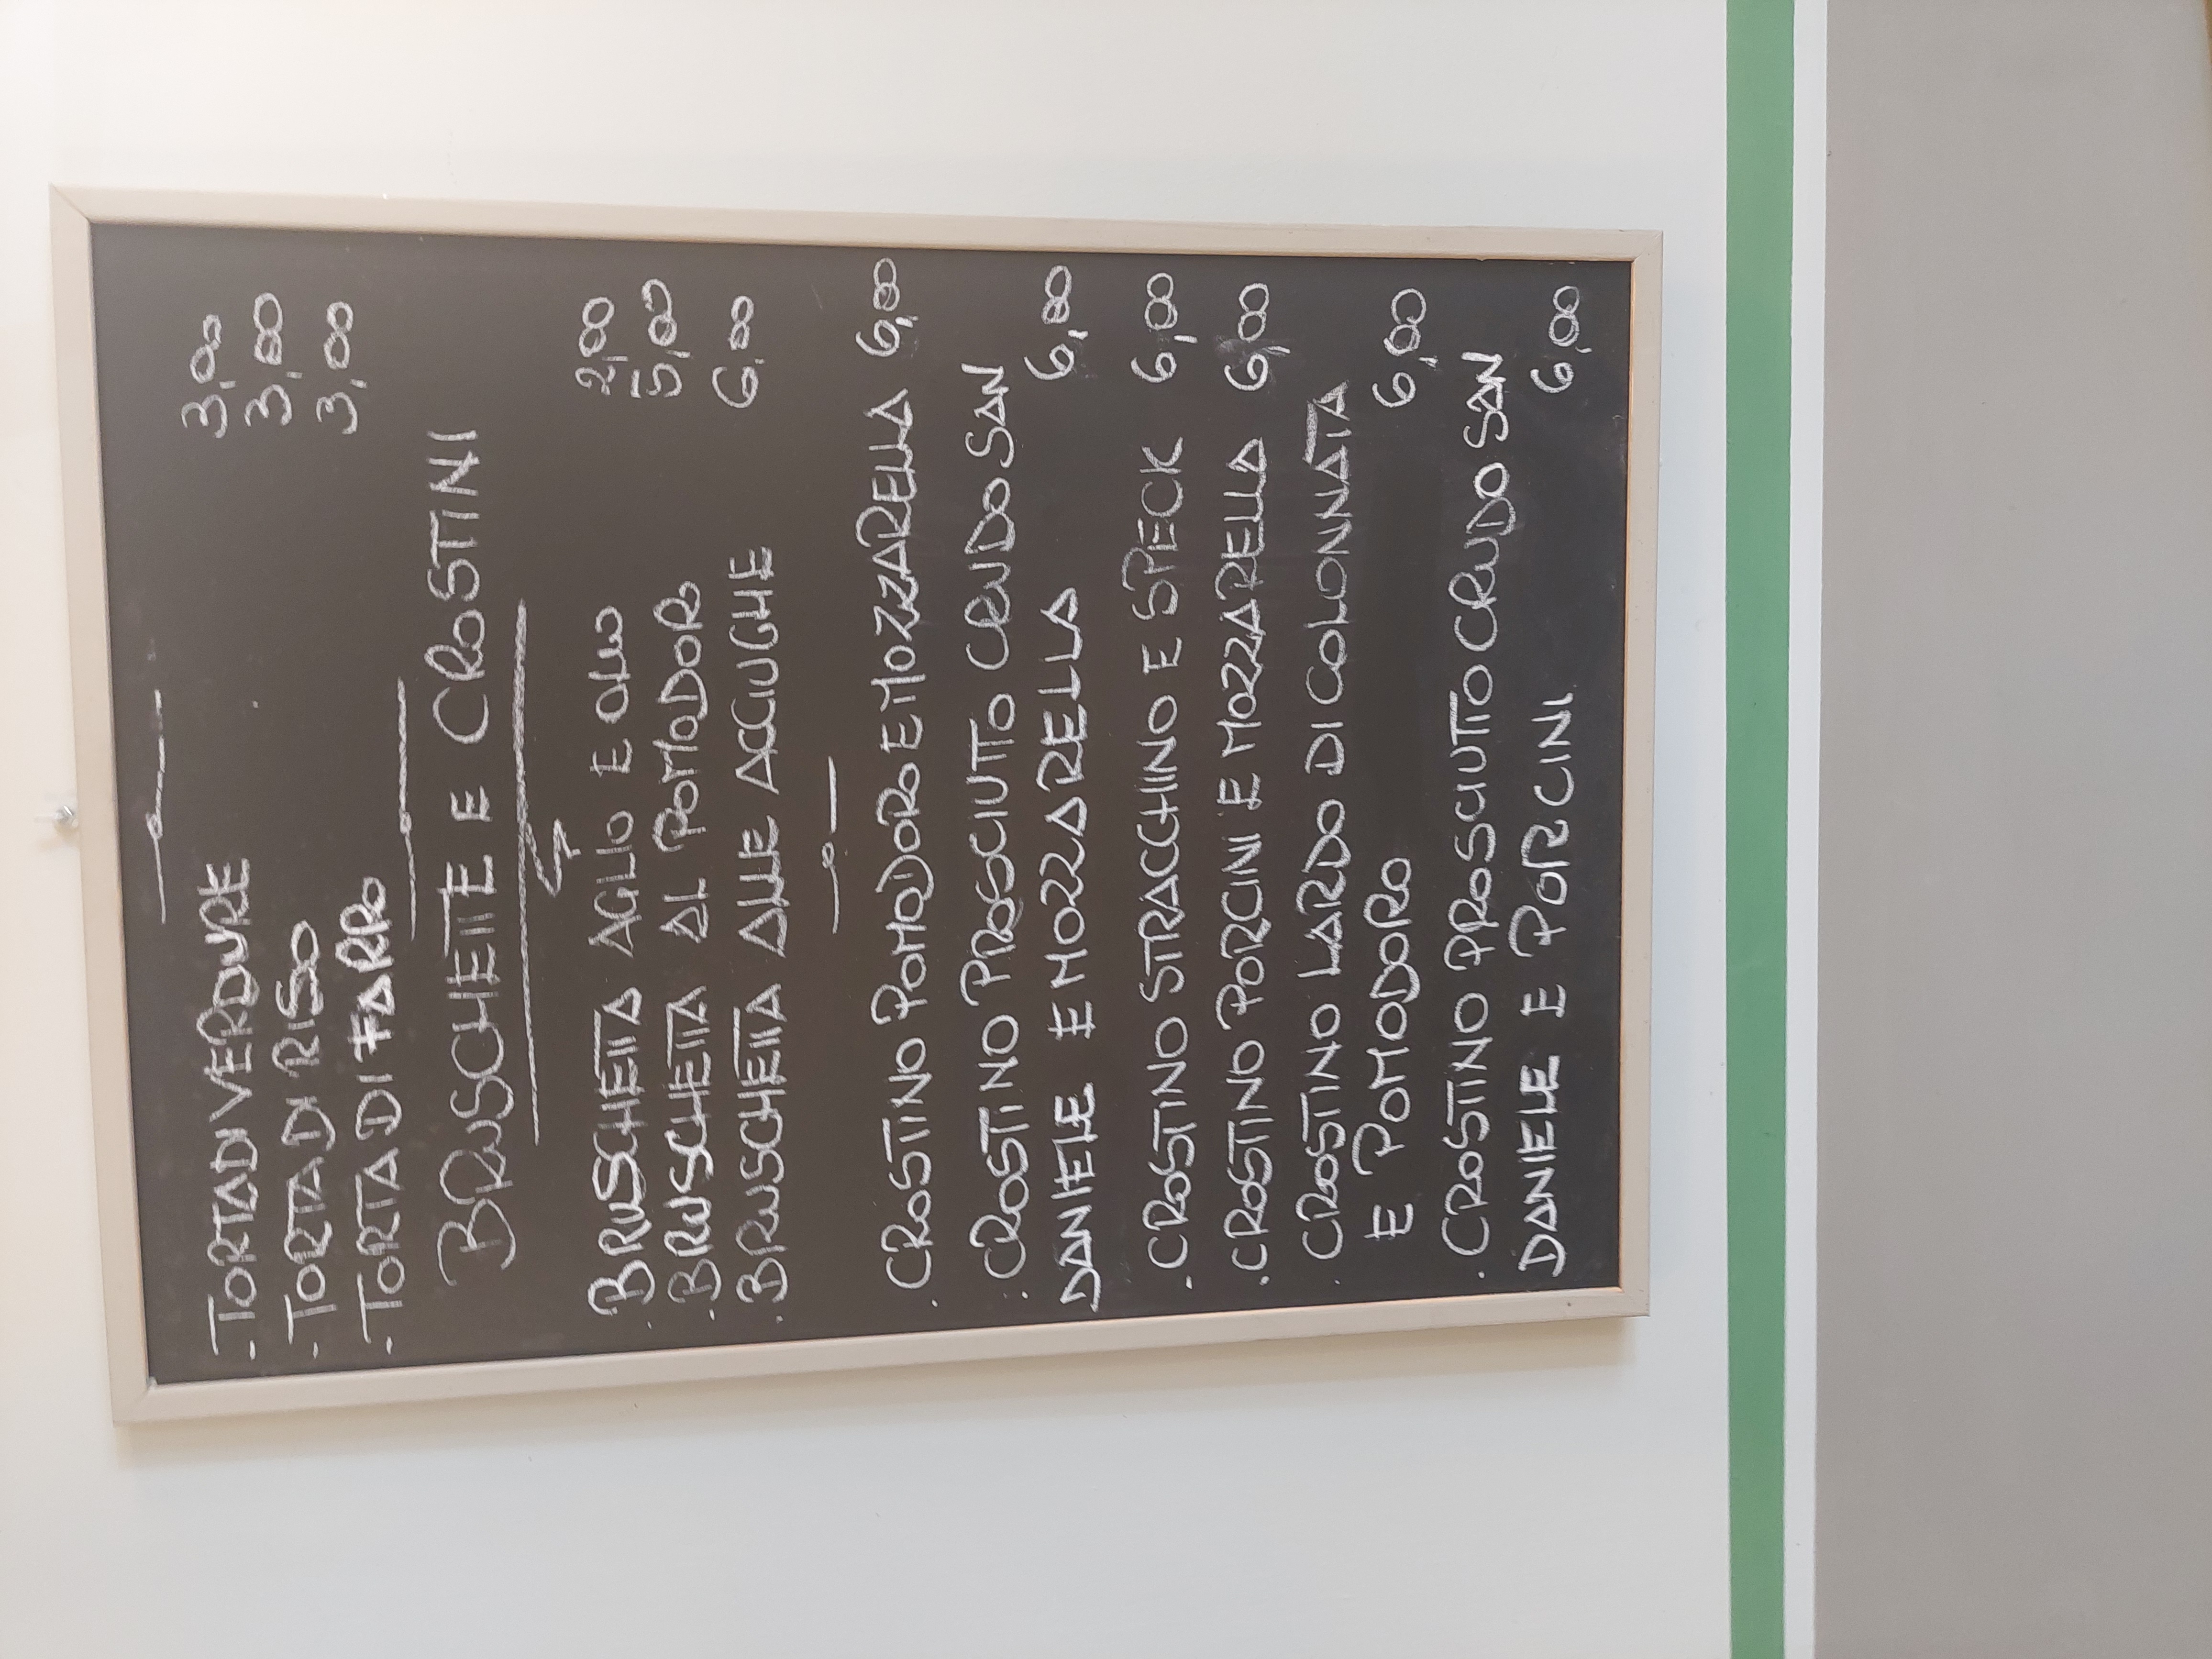 - TORTA DI VERDURE 3,00
- TORTA DI RISO 3,00
- TORTA DI FARRO 3,00
BRUSCHETTE E CROSTINI
. BRUSCHETTA AGLIO E OLIO 2,00
. BRUSCHETTA AL POMODORO 5,00
. BRUSCHETTA ALLE ACCIUGHE 6,00
. CROSTINO POMODORO E MOZZARELLA 6,00
. CROSTINO PROSCIUTTO CRUDO SAN
DANIELE E MOZZARELLA 6,00
. CROSTINO STRACCHINO E SPECK 6,00
. CROSTINO PORCINI E MOZZARELLA 6,00
. CROSTINO LARDO DI COLONNATA
E POMODORO 6,00
. CROSTINO PROSCIUTTO CRUDO SAN
DANIELE E PORCINI 6,00